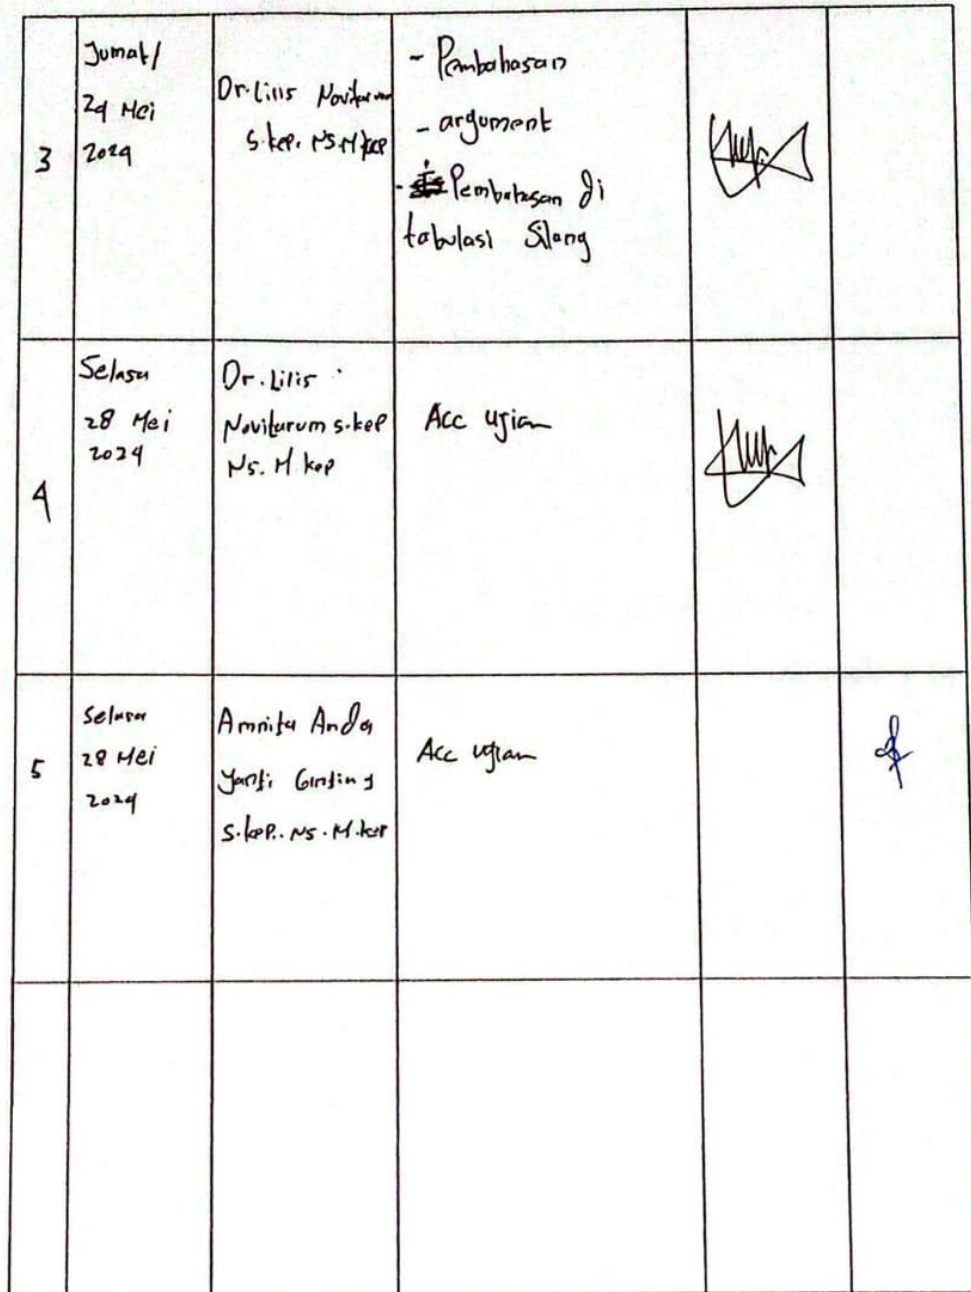 3
Jumat/
24 Mei
2024
Dr. Lilis Novitarum
S.kep. NS. M.kep
- Pembahasan
- argument
- Pembahasan di
tabulasi Silang
4
Selasa
28 Mei
2024
Dr. Lilis
Novitarum s.kep
Ns. M. kep
Acc ujian
5
Selasa
28 Mei
2024
Amnita Anda
Yanti Ginting
S.kep.. NS. M.kep
Acc ujian